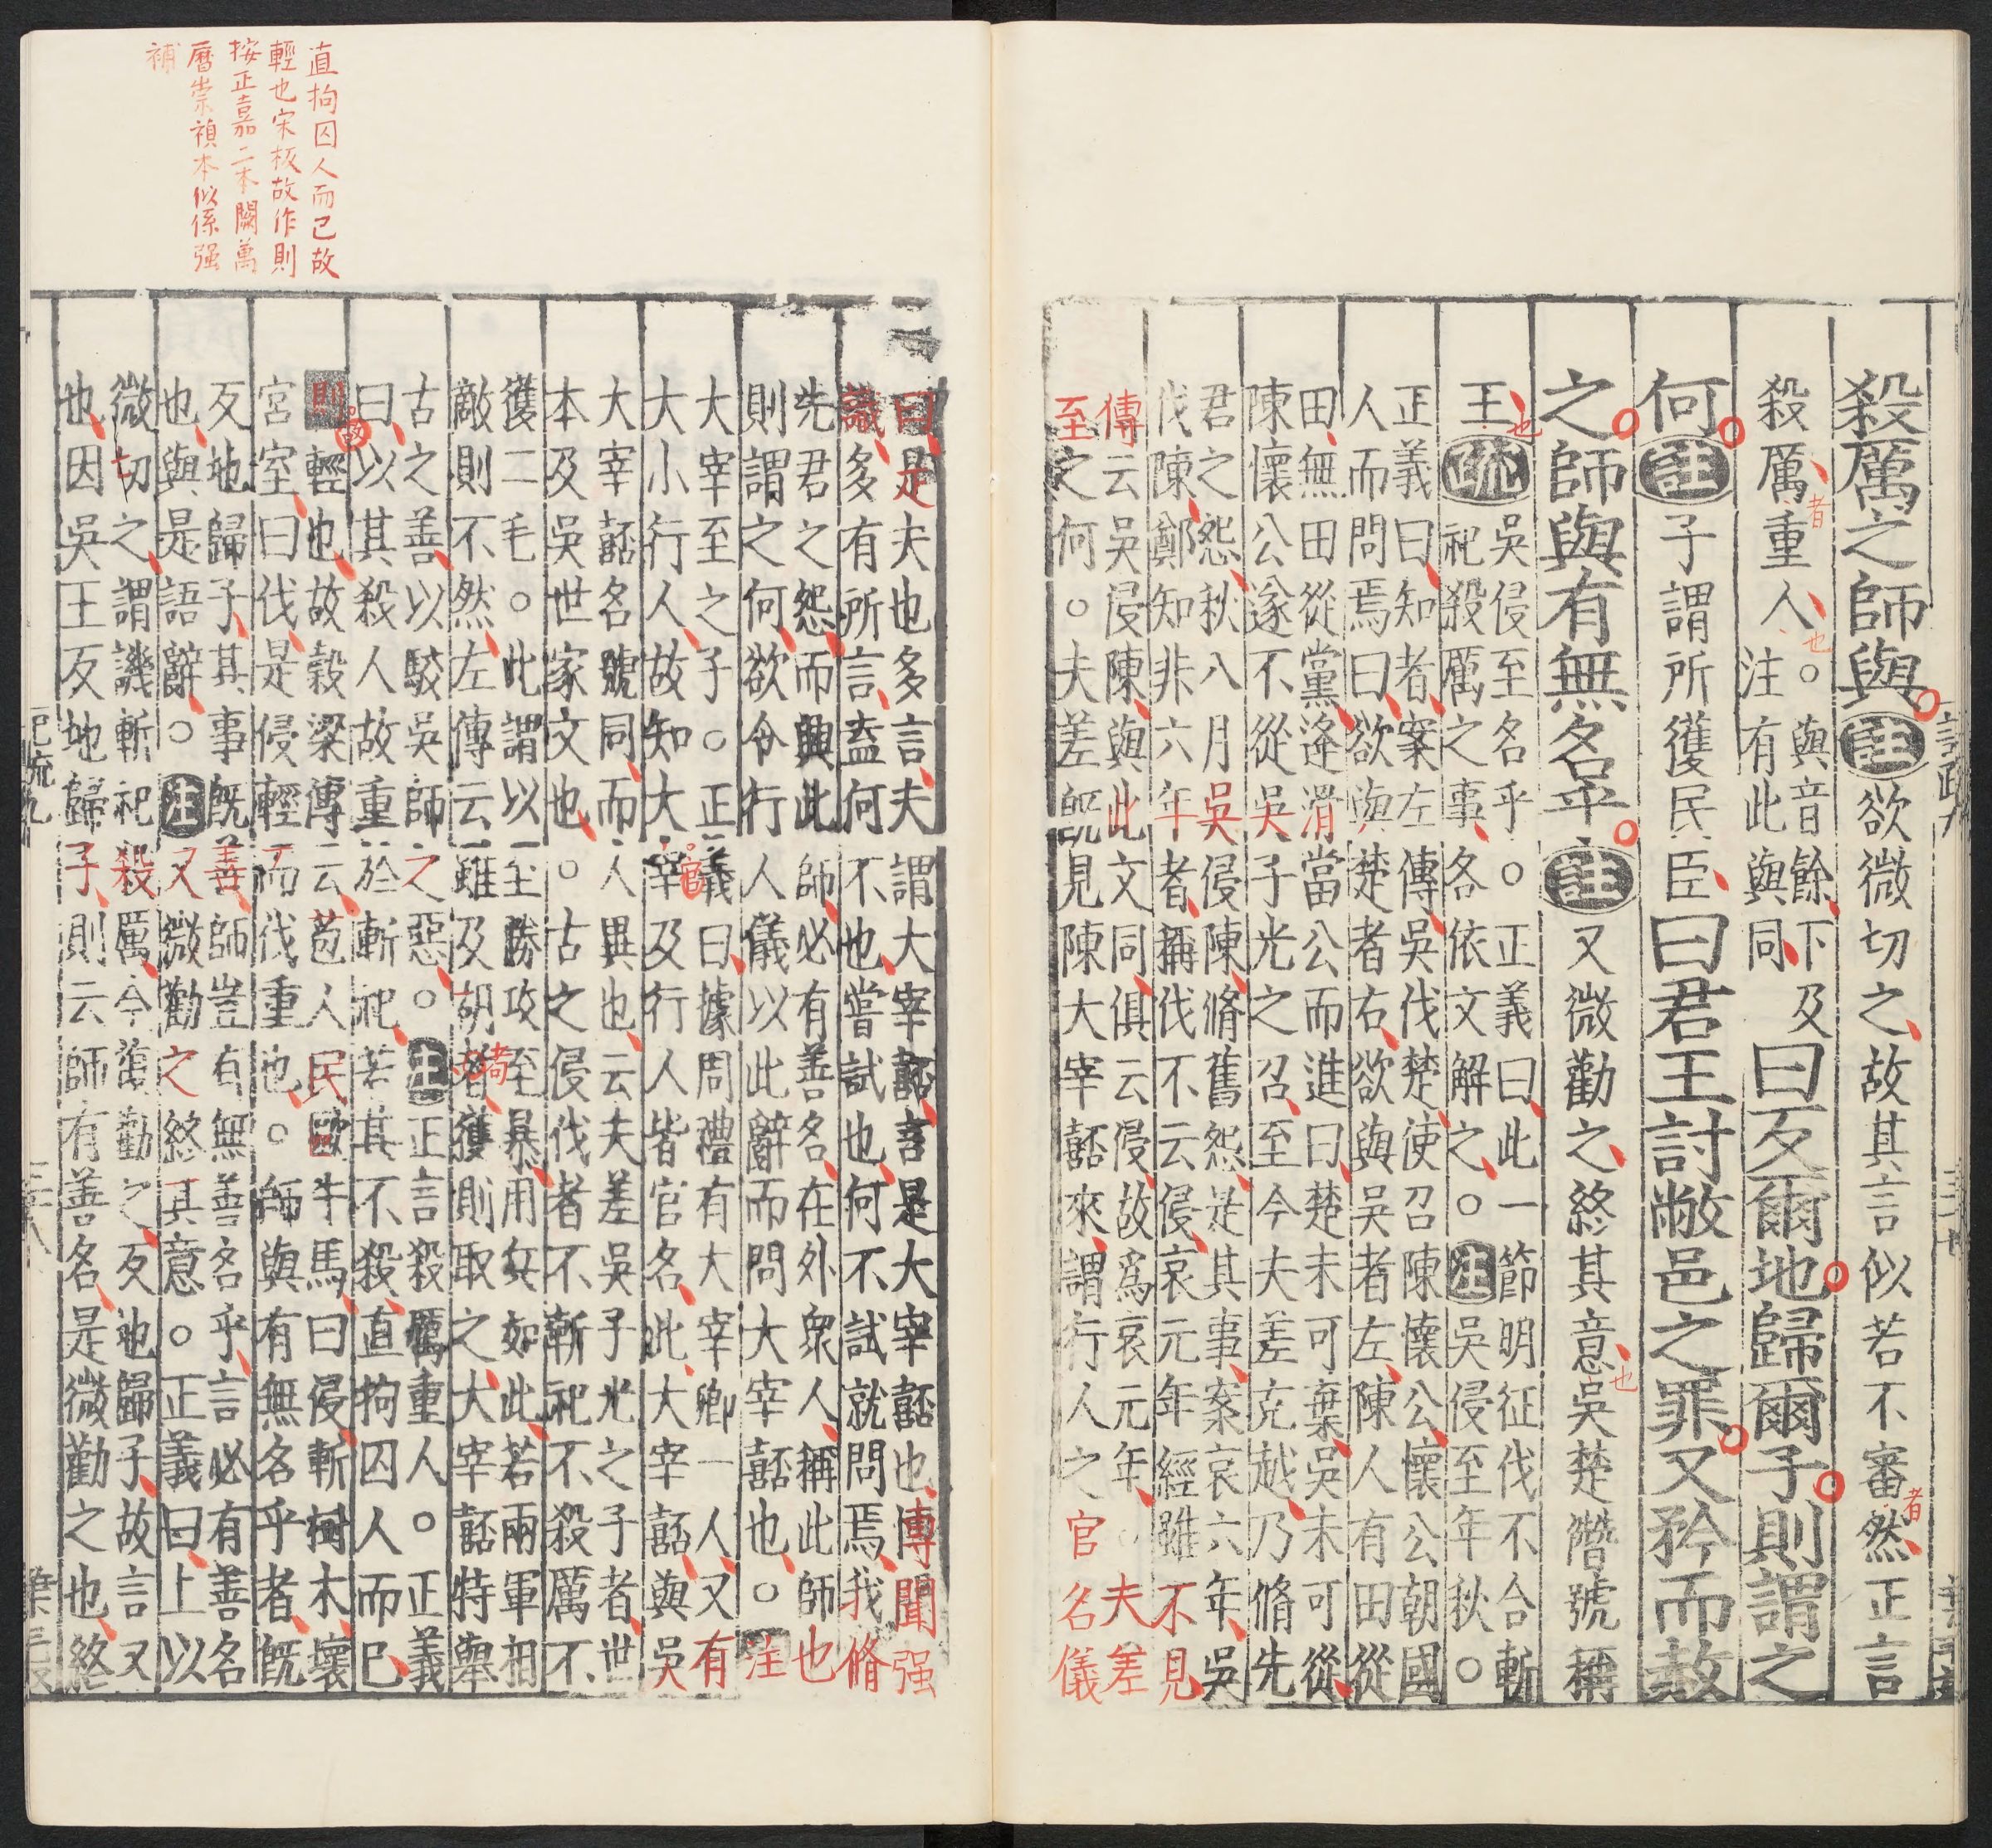 殺厲之師與註欲微切之故其言似若不審者然正言
殺厲者重人也○與音餘下及
注有此與同
曰反爾地歸爾子則謂之
何註子謂所獲民臣曰君王討敝邑之罪又矜而赦
之師與有無名乎註又微勸之終其意也吳楚僭號稱
王也疏
吳侵至名乎○正義曰此一節明征伐不合斬
祀殺厲之事各依文解之○注吳侵至年秋○
正義曰知者案左傳吳伐楚使召陳懷公懷公朝國
人而問焉曰欲與楚者右欲與吳者左陳人有田從
田無田從黨逢滑當公而進曰楚未可棄吳未可從
陳懷公遂不從吳子光之召至今夫差克越乃脩先
君之怨秋八月吳侵陳脩舊怨是其事案哀六年吳
伐陳鄭知非六年者稱伐不云侵哀元年經雖不見
傳云吳侵陳與此文同俱云侵故爲哀元年○夫差
至之何○夫差旣見陳大宰嚭來謂行人之官名儀
直拘囚人而已故
輕也宋板故作則
按正嘉二本闕萬
曆崇禎本似係强
補
曰是夫也多言夫謂大宰嚭言是大宰嚭也傳聞强
識多有所言盍何不也嘗試也何不試就問焉我脩
先君之怨而興此師必有善名在外衆人稱此師也
則謂之何欲令行人儀以此辭而問大宰嚭也○注
大宰至之子○正義曰據周禮有大宰卿一人又有
大小行人故知大宰官及行人皆官名此大宰嚭與吳
大宰嚭名號同而人異也云夫差吳子光之子者世
本及吳世家文也○古之侵伐者不斬祀不殺厲不
獲二毛○此謂以至勝攻至暴用兵如此若兩軍相
敵則不然左傳云雖及胡耇獲則取之大宰嚭特舉
古之善以駁吳師之惡○注正言殺厲重人○正義
曰以其殺人故重於斬祀若其不殺直拘囚人而巳
則故輕也故穀梁傳云苞人民敺牛馬曰侵斬樹木壞
宮室曰伐是侵輕而伐重也○師與有無名乎者旣
反地歸子其事旣善師豈有無善名乎言必有善名
也與是語辭○注又微勸之終其意○正義曰上以
微切之謂譏斬祀殺厲今復勸之反地歸子故言又
也因吳王反地歸子則云師有善名是微勸之也終